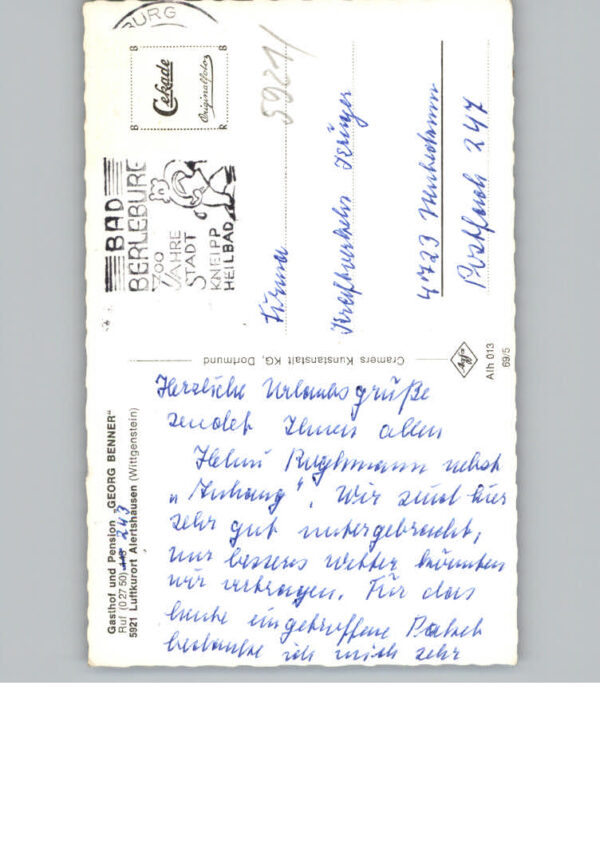 BURG
B B
Cekade
Originalfoto
B R
5921/
BAD
BERLEBURG
700
JAHRE
STADT
KNEIPP
HEILBAD
Firma
Kraftverkehr
4723 Neubeckum
Postfach 247
Cramers Kunstanstalt KG, Dortmund
Agfa
Alh 013
69/5
Gasthof und Pension „GEORG BENNER"
Ruf (0 27 50) 243
5921 Luftkurort Alertshausen (Wittgenstein)
Herzliche Urlaubsgrüße
sendet Ihnen allen
nebst
„Anhang". Wir sind hier
sehr gut untergebracht,
nur besseres Wetter könnten
wir vertragen. Für das
heute eingetroffene Paket
bedanke ich mich sehr